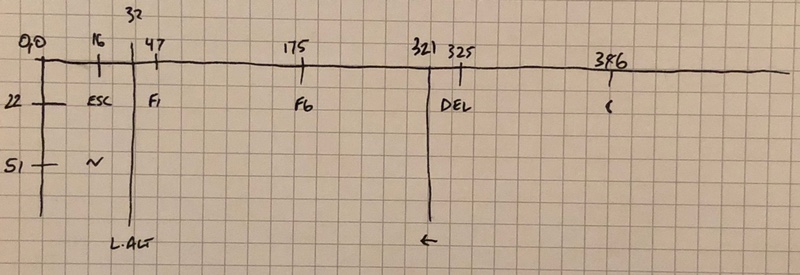 32
0,0 16 47 175 321 325 386
22 ESC F1 F6 DEL (
51 ~
L.ALT ←